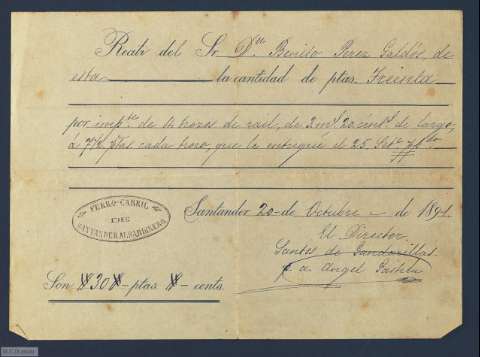 Recibí del Sr. Dn. Benito Perez Galdós, de
esta la cantidad de ptas. Treinta
por impte. de 4 trozos de rail, de 2 mt. 20 cent. de largo,
á 7½ ptas cada trozo, que le entregué el 25 Sete.
FERRO-CARRIL
DE
SANTANDER AL SARDINERO
Santander 20 de Octubre de 1891.
El Director
Santos de Gandarillas
p. a. Angel
Son #30#- ptas. #- cents.